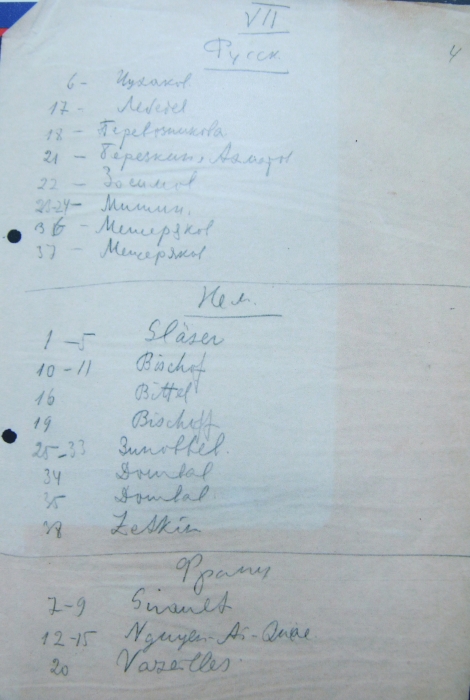 VII
4
Русск.
6 - Чухаков
17 - Лебедев
18 - Перевозникова
21 - Березкин,
22 - Засимов
23-24 - Митин.
36 - Мещеряков
37 - Мещеряков
Нем.
1-5 Gläser
10-11 Bischof
16 Bittel
19 Bischoff
25-33
34 Dombal
35 Dombal
38 Zetkin
Франц
7-9 Girault
12-15 Nguyen-Ai-Quac
20 Vazeilles.